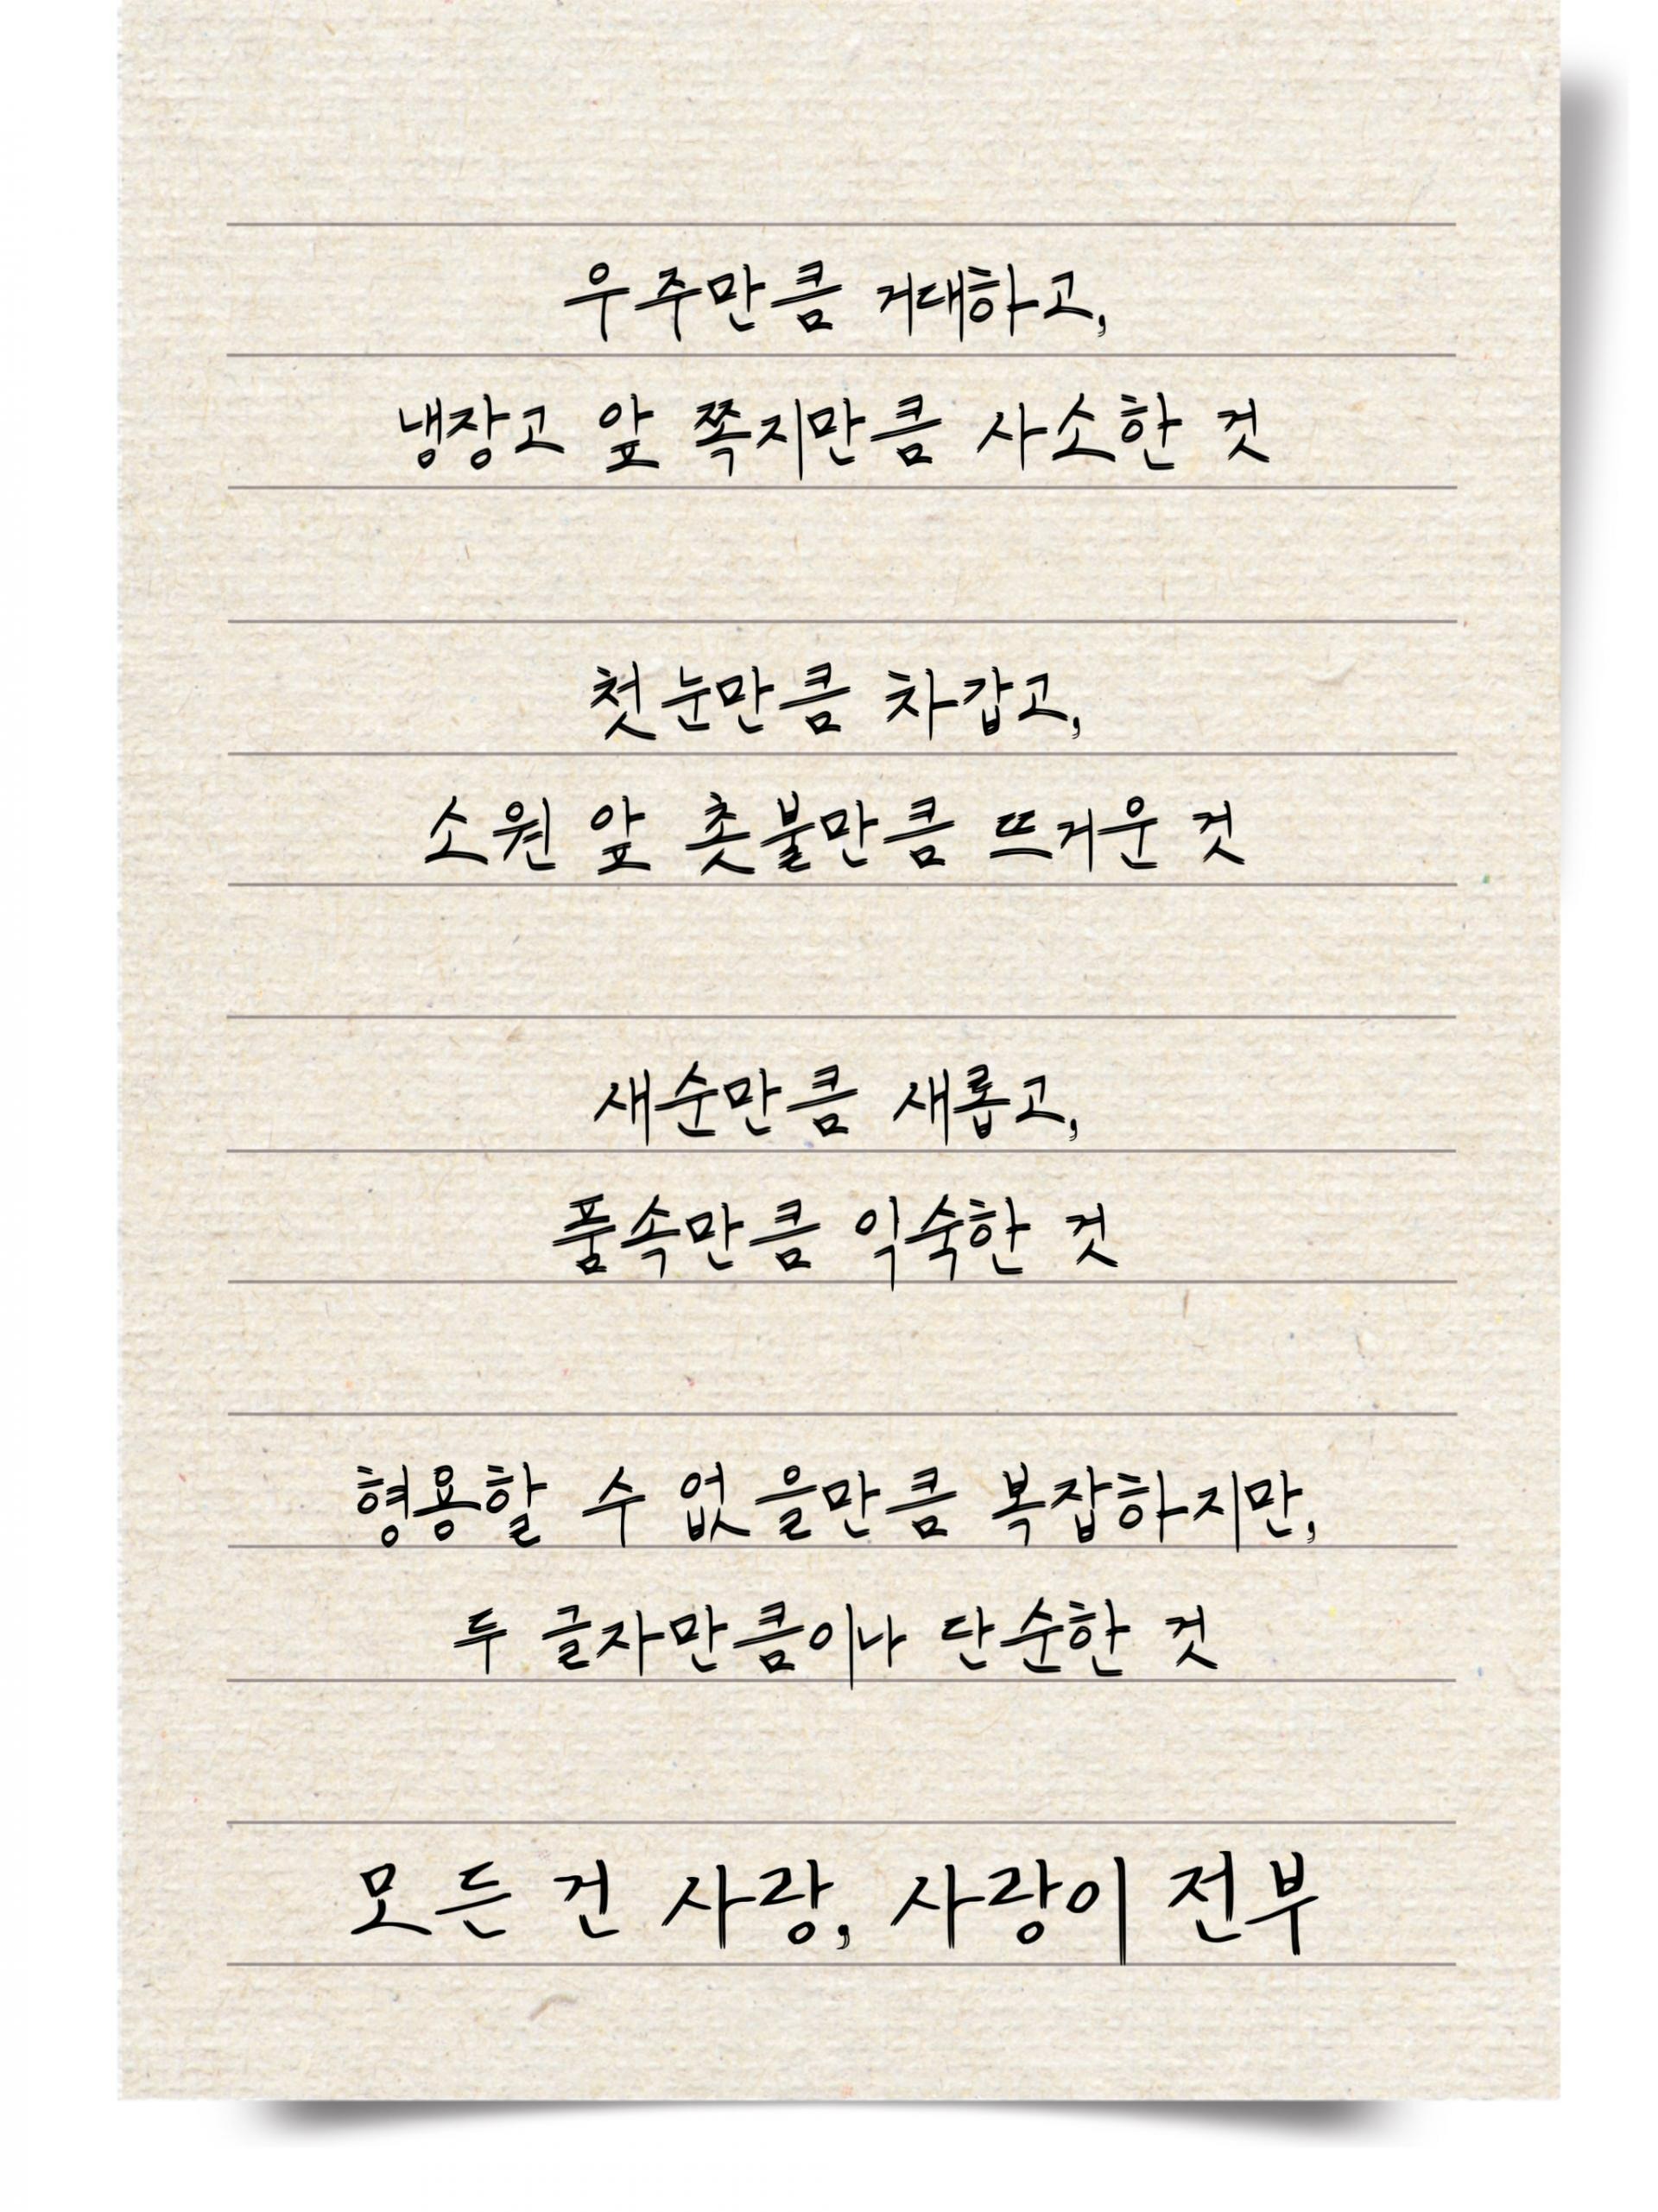 우주만큼 거대하고,
냉장고 앞 쪽지만큼 사소한 것
첫눈만큼 차갑고,
소원 앞 촛불만큼 뜨거운 것
새순만큼 새롭고,
품속만큼 익숙한 것
형용할 수 없을만큼 복잡하지만,
두 글자만큼이나 단순한 것
모든 건 사랑, 사랑이 전부